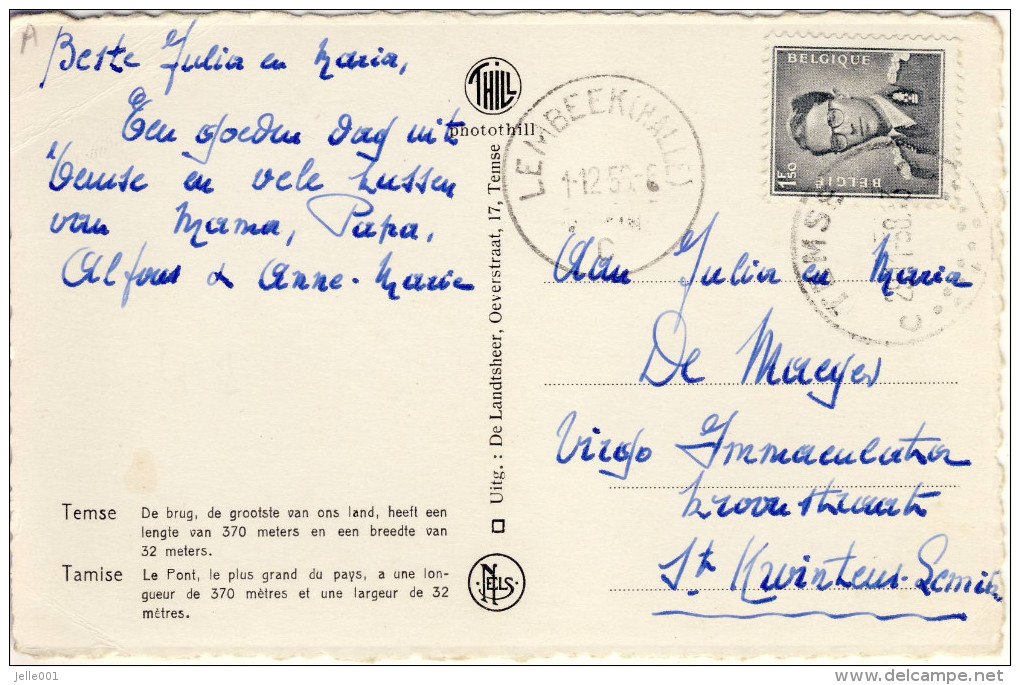 A
Beste Julia en Maria,
Een goeden dag uit
Temse en vele kussen
van Mama, Papa,
Alfons & Anne-Marie
THILL
photothill
Uitg. : De Landtsheer, Oeverstraat, 17, Temse
NELS
LEMBEEK (HALLE)
1-12.5
C
BELGIQUE
1F50
BELGIE
C
Aan Julia en Maria
De Maeyer
Virgo Immaculata
Kroonstraat
St Kwintens-Lennik
Temse De brug, de grootste van ons land, heeft een
lengte van 370 meters en een breedte van
32 meters.
Tamise Le Pont, le plus grand du pays, a une lon-
gueur de 370 mètres et une largeur de 32
mètres.
jelle001
delcampe.net